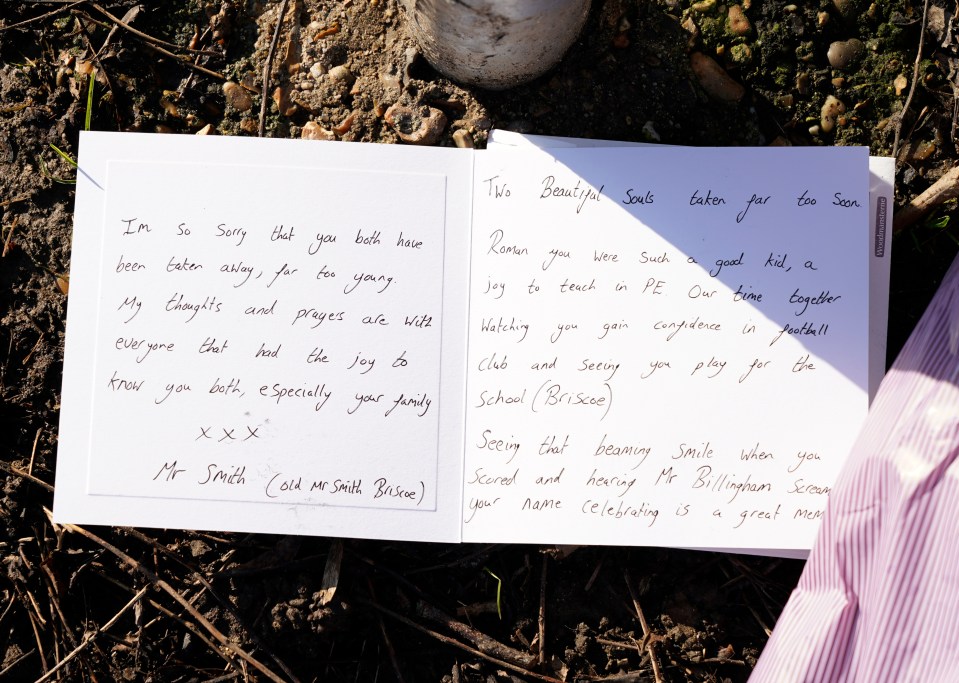 Im so sorry that you both have
been taken away, far too young.
My thoughts and prayers are with
everyone that had the joy to
know you both, especially your family
x x x
Mr Smith (old Mr Smith Briscoe)
Two Beautiful Souls taken far too Soon.
Roman you were such a good kid, a
joy to teach in PE. Our time together
Watching you gain confidence in football
club and seeing you play for the
School (Briscoe)
Seeing that beaming Smile when you
Scored and hearing Mr Billingham Scream
your name celebrating is a great